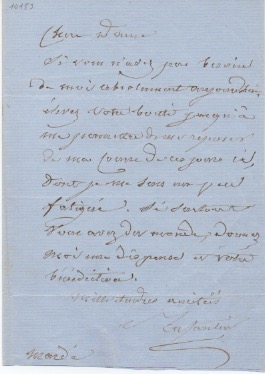 10153
Chère Dame
Si vous n'avez pas besoin
de moi absolument aujourd'hui,
votre bonté jusqu'à
me permettre de me reposer
de ma course de ces jours ci
dont je me sens un peu
fatiguée. Si surtout
vous avez du monde, donnez
moi une dispense et votre
bénédiction.
Mille tendres amitiés
Mardi